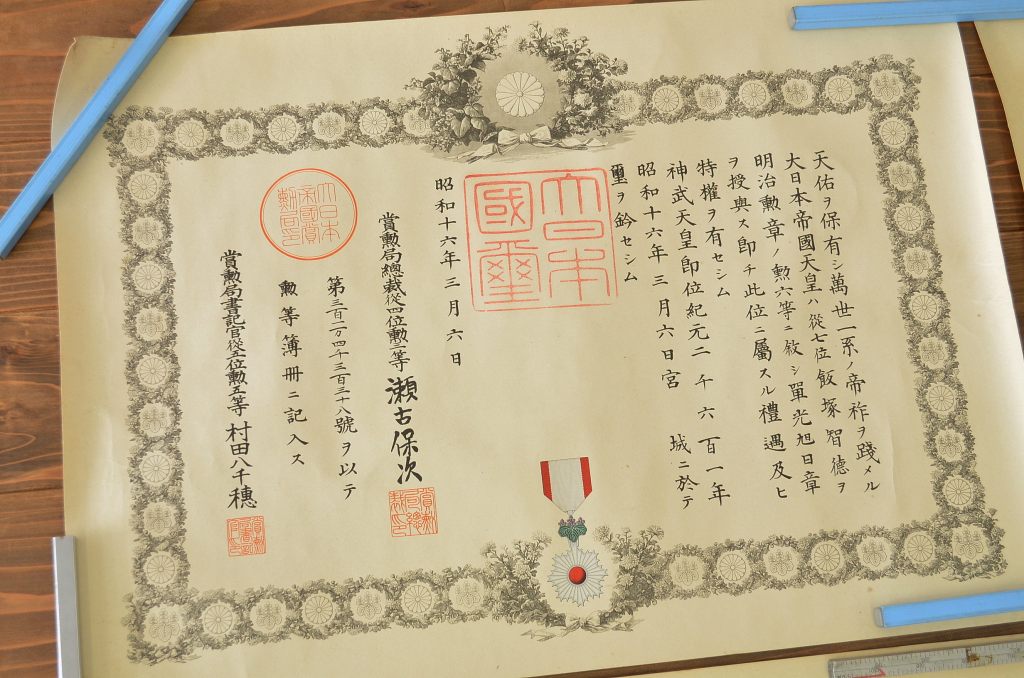 天佑ヲ保有シ萬世一系ノ帝祚ヲ踐メル
大日本帝國天皇ハ從七位飯塚智德ヲ
明治勲章ノ勲六等ニ敍シ單光旭日章
ヲ授與ス即チ此位ニ屬スル禮遇及ヒ
特權ヲ有セシム
神武天皇即位紀元二千六百一年
昭和十六年三月六日宮城ニ於テ
璽ヲ鈐セシム
大日本
國璽
昭和十六年三月六日
賞勲局總裁從四位勲三等瀬古保次
第三百二万四千三百三十八號ヲ以テ
勲等簿冊ニ記入ス
大日本
帝國賞
勲局印
賞勲局書記官從五位勲五等村田八千穗